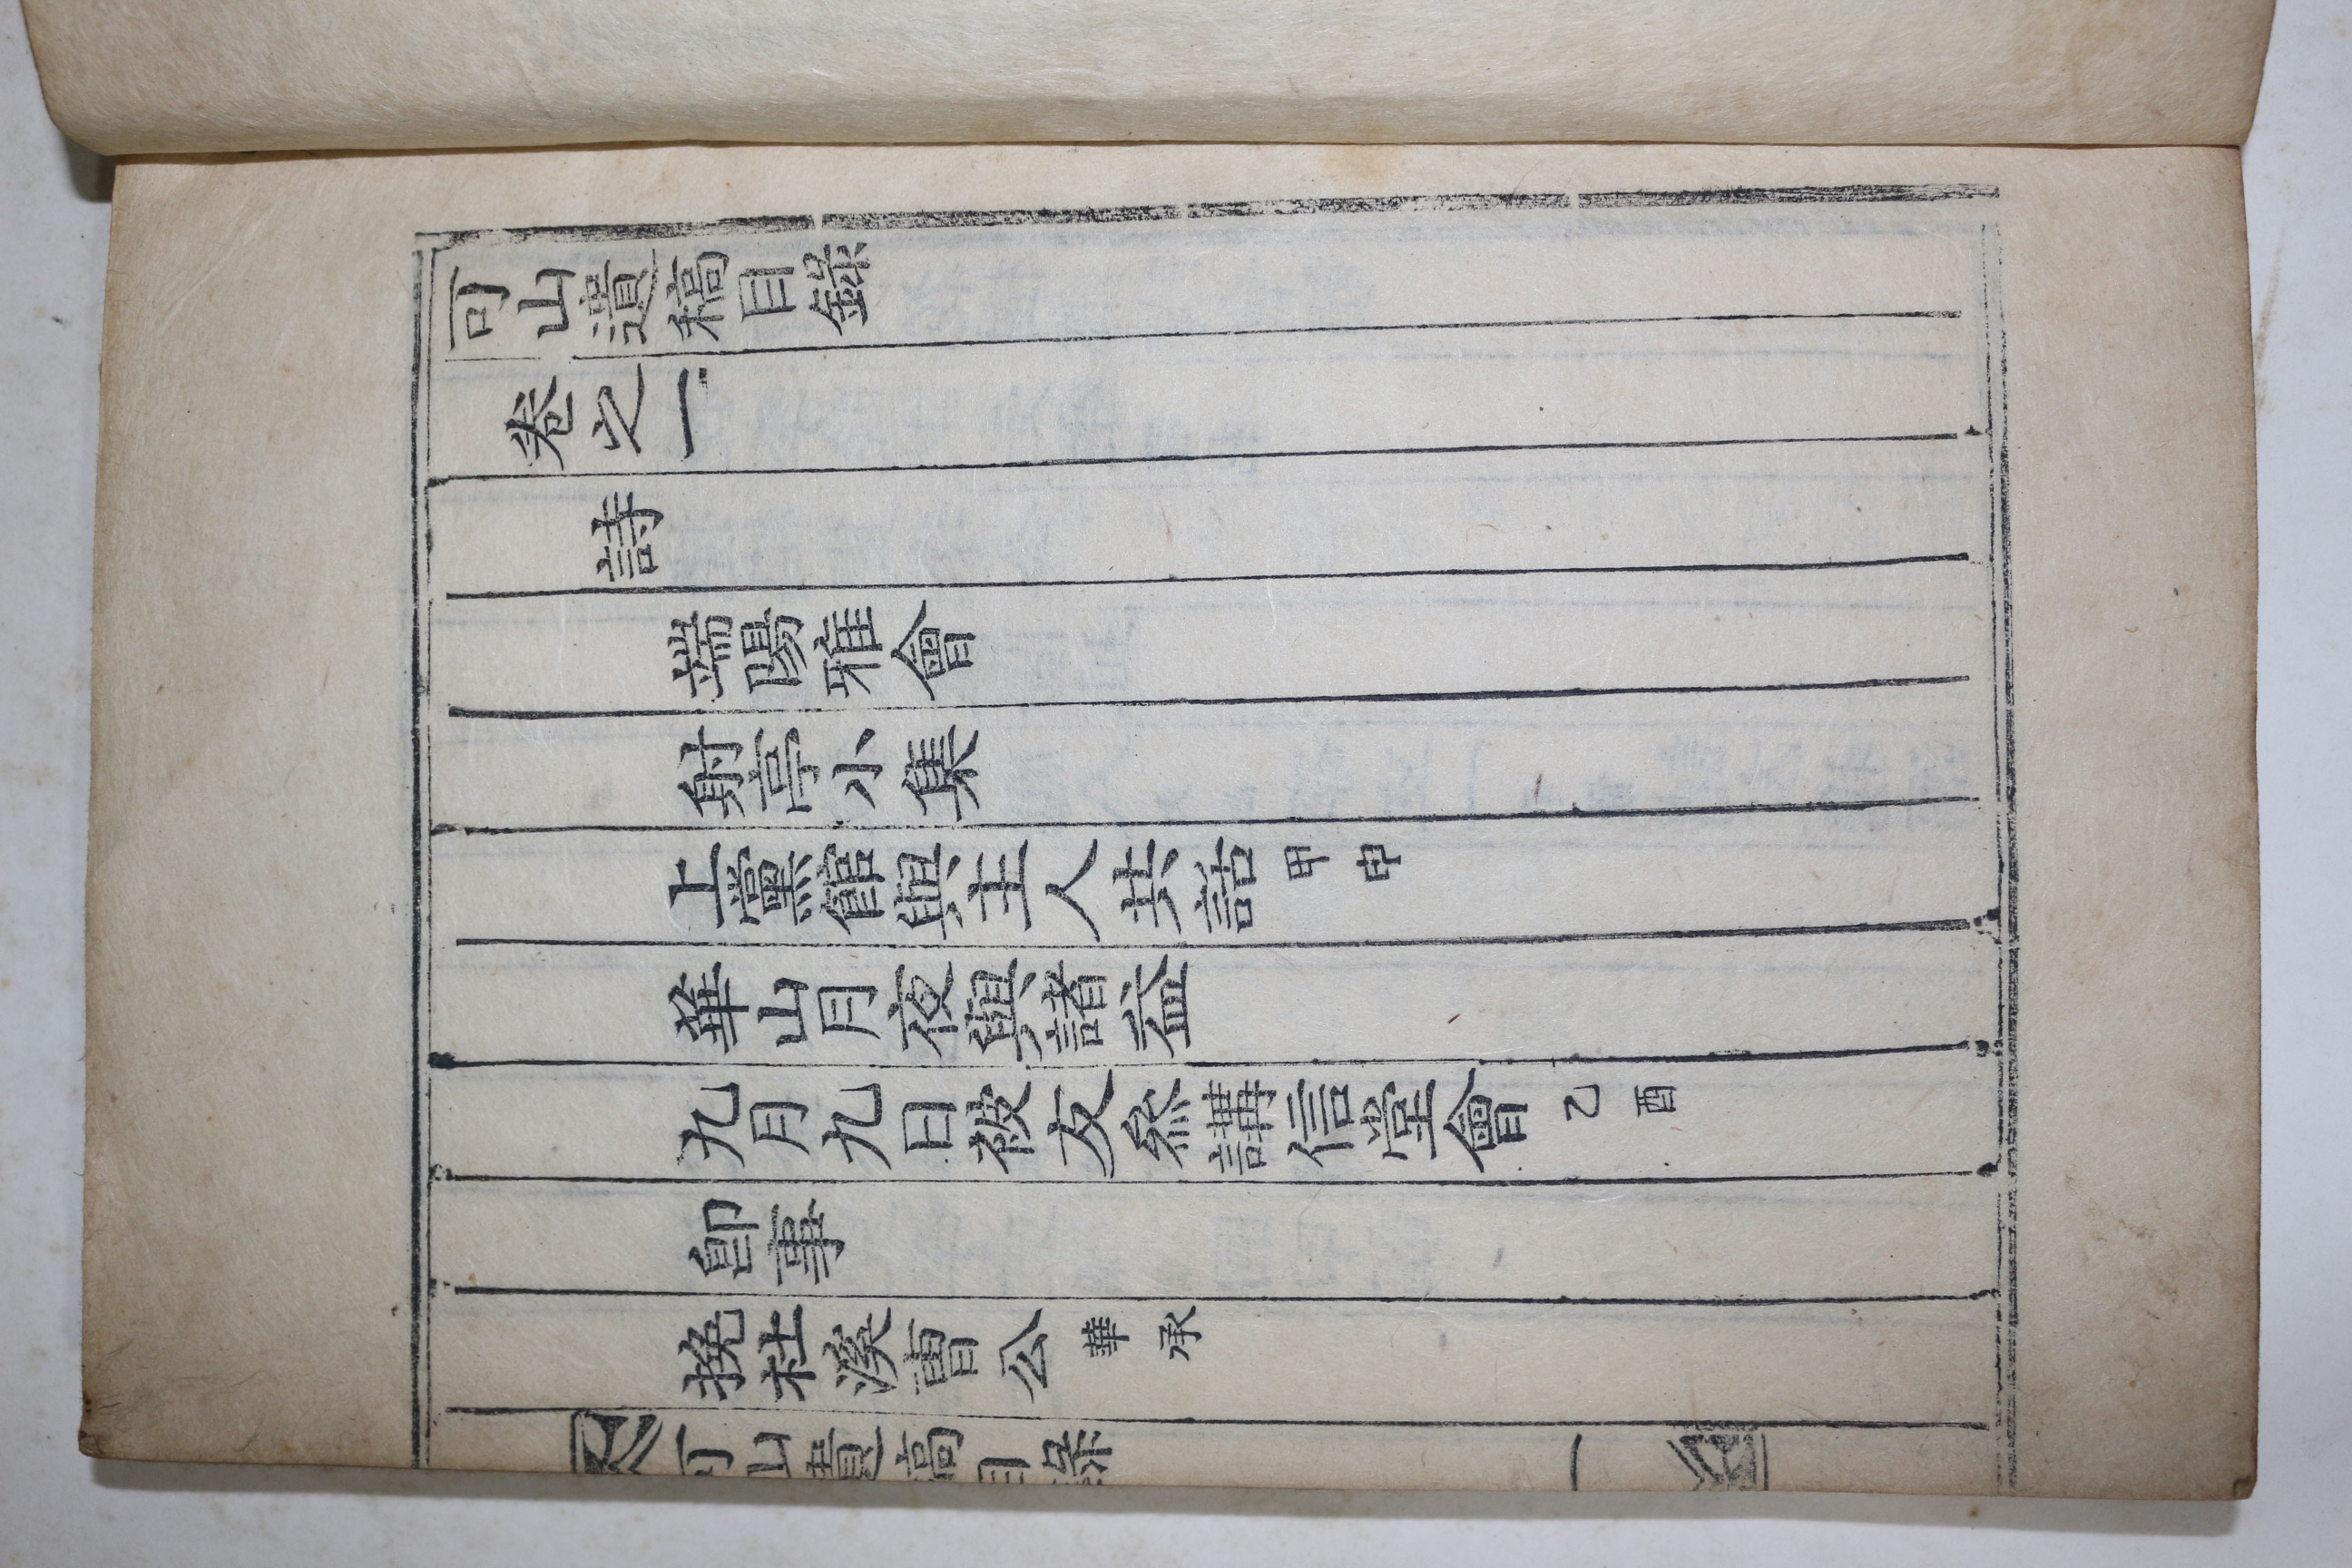 可山遺稿目錄
卷之一
詩
端陽雅會
射亭小集
上黨館與主人共話 甲申
華山月夜與諸益
九月九日被友叅講信堂會 乙酉
卽事
挽杜溪曺公 華承
可山遺稿目錄 一